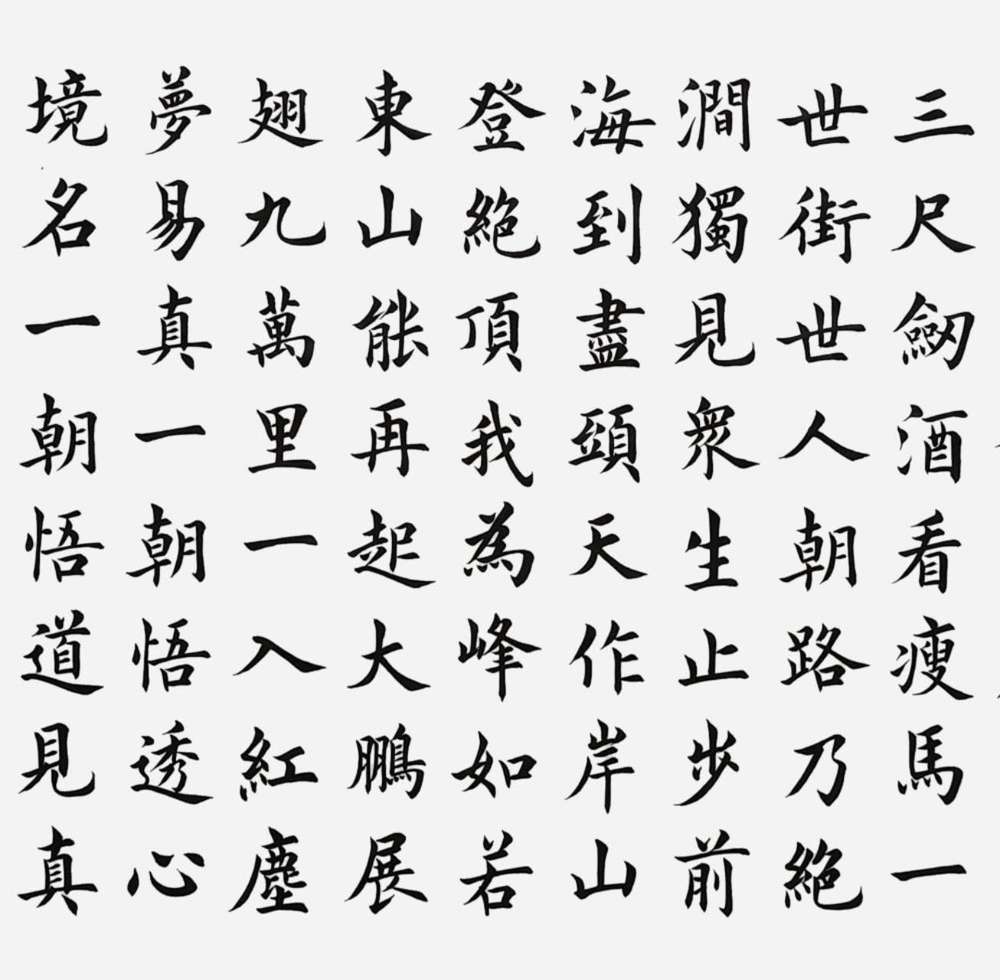 三尺劔酒看瘦馬一
世街世人朝路乃絶
澗獨見衆生止步前
海到盡頭天作岸山
登絶頂我為峰如若
東山能再起大鵬展
翅九萬里一入紅塵
夢易真一朝悟透心
境名一朝悟道見真